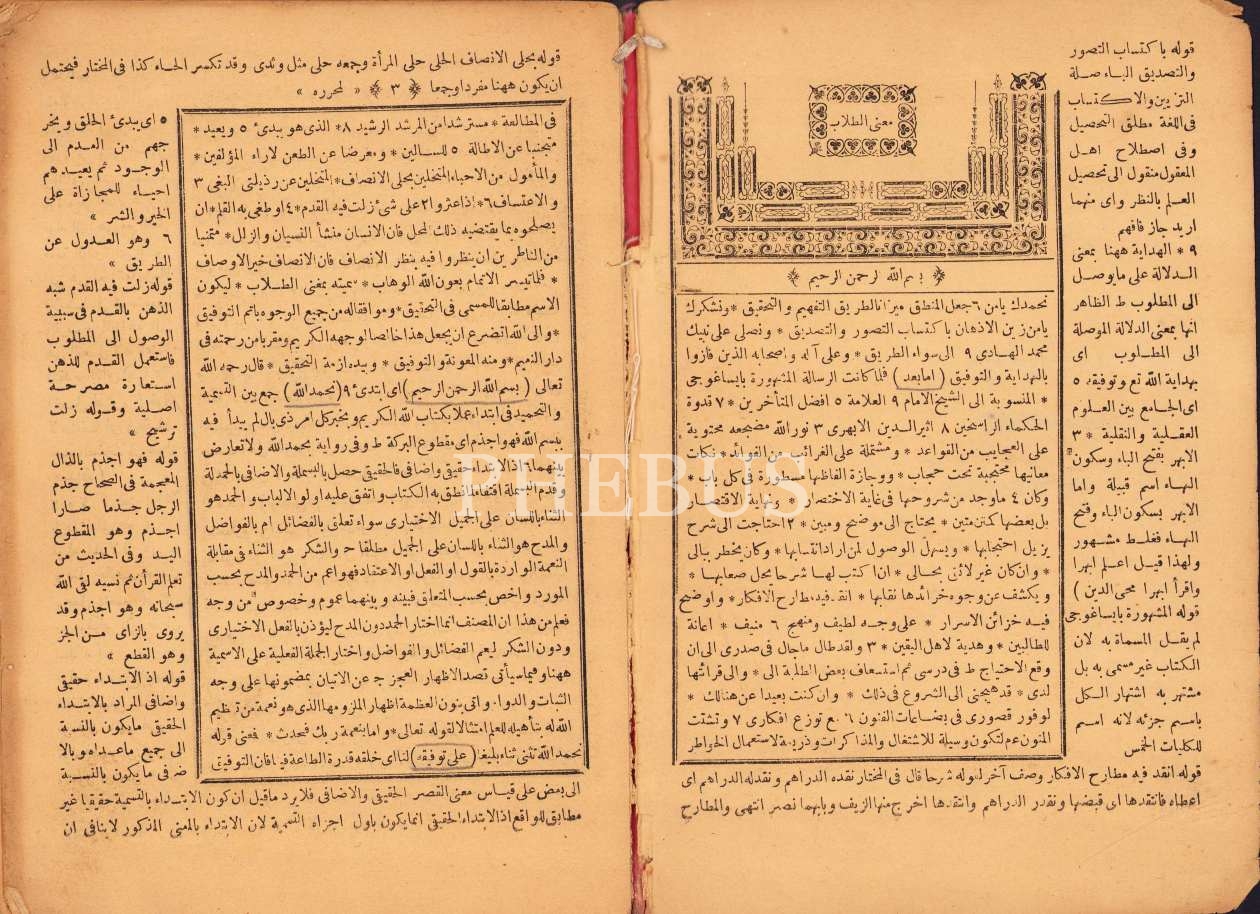 قوله باكتساب التصور
والتصديق الباء صلة
التزيين والاكتساب
فى اللغة مطلق التحصيل
وفى اصطلاح اهل
المعقول منقول الى تحصيل
العلم بالنظر واى منهما
اريد جاز فافهم
٩ * الهداية ههنا بمعنى
الدلالة على مايوصل
الى المطلوب ط الظاهر
انها بمعنى الدلالة الموصلة
الى المطلوب اى
بهداية الله تع وتوفيقه ٥
اى الجامع بين العلوم
العقلية والنقلية * ٣
الابهر بفتح الباء وسكون
الهاء اسم قبيلة واما
الابهر بسكون الباء وفتح
الهاء فغلط مشهور
ولهذا قيل اعلم ابهرا
واقرأ ابهرا محى الدين )
قوله المشهورة بايساغوجى
لم يقل المسماة به لان
الكتاب غير مسمى به بل
مشتهر به اشتهار الكل
باسم جزئه لانه اسم
للكليات الخمس
مغنى الطلاب
بسم الله الرحمن الرحيم
نحمدك يامن ٦ جعل المنطق ميزانا لطريق التفهيم والتحقيق * ونشكرك
يامن زين الاذهان باكتساب التصور والتصديق * ونصلى على نبيك
محمد الهادى ٩ الى سواء الطريق * وعلى آله واصحابه الذين فازوا
بالهداية والتوفيق ( امابعد ) فلما كانت الرسالة المشهورة بايساغوجى
* المنسوبة الى الشيخ الامام ٩ العلامة ٥ افضل المتأخرين * ٧ قدوة
الحكماء الراسخين ٨ اثير الدين الابهرى ٣ نور الله مضجعه محتوية
على العجايب من القواعد * ومشتملة على الغرائب من الفوائد * نكات
معانيها محتجبة تحت حجاب * ووجازة الفاظها مسطورة فى كل باب *
وكان ٤ ماوجد من شروحها فى غاية الاختصار * ونهاية الاقتصار
بل بعضها كنز متين * يحتاج الى موضح ومبين * ٢ احتاجت الى شرح
يزيل احتجابها * ويسهل الوصول لمن اراد انتسابها * وكان يخطر ببالى
* وان كان غير لائق بحالى * ان اكتب لها شرحا يحل صعابها *
ويكشف عن وجوه خرائدها نقابها * انقد فيه مطارح الافكار * واوضح
فيه خزائن الاسرار * على وجه لطيف ومنهج ٦ منيف * اعانة
للطالبين * وهدية لاهل اليقين * ٣ ولقد طال ماجال فى صدرى الى ان
وقع الاحتياج ط فى درسى ثم استسعاف بعض الطلبة الى * والى قرائتها
لدى * قد هيجنى الى الشروع فى ذلك * وان كنت بعيدا عن هنالك *
لوفور قصورى فى بضاعات الفنون ٦ مع توزع افكارى ٧ وتشتت
لتكون وسيلة للاشتغال والمذاكرات وذريعة لاستعمال الخواطر
قوله انقد فيه مطارح الافكار وصف آخر لقوله شرحا قال فى المختار نقده الدراهم ونقد له الدراهم اى
اعطاه فانتقدها اى قبضها ونقد الدراهم وانتقدها اخرج منها الزيف وبابهما نصر انتهى والمطارح
قوله بحلى الانصاف الحلى حلى المرأة وجمعه حلى مثل وثدى وقد تكسر الحاء كذا فى المختار فيحتمل
ان يكون ههنا مفردا وجمعا * ٣ * « لمحرره »
فى المطالعة * مسترشدا من المرشد الرشيد ٨ * الذى هو يبدئ ٥ ويعيد *
متجنبا عن الاطالة ٥ للسالين * ومعرضا عن الطعن لاراء المؤلفين *
والمأمول من الاحباء المتحلين بحلى الانصاف * المتخلين عن رذيلتى البغى ٣
والاعتساف ٦ * اذا عثروا ٢ على شئ زلت فيه القدم * ٤ او طغى به القلم * ان
يصلحوه بما يقتضيه ذلك المحل فان الانسان منشأ النسيان والزلل * متمنيا
من الناظرين ان ينظروا فيه بنظر الانصاف فان الانصاف خير الاوصاف
* فلما تيسر الاتمام بعون الله الوهاب * سميته بمغنى الطلاب * ليكون
الاسم مطابقا للمسمى فى التحقيق * وموافقا له من جميع الوجوه باتم التوفيق
* والى الله اتضرع ان يجعل هذا خالصا لوجهه الكريم ومقربا من رحمته فى
دار النعيم * ومنه المعونة والتوفيق * وبيده ازمة التحقيق * قال رحمه الله
تعالى ( بسم الله الرحمن الرحيم ) اى ابتدئ ٩ ( نحمد الله ) جمع بين التسمية
والتحميد فى ابتداء عملا بكتاب الله الكريم وبخبر كل امر ذى بال لم يبدأ فيه
ببسم الله فهو اجذم اى مقطوع البركة ط وفى رواية بحمد الله ولا تعارض
بينهما ٦ اذ الابتداء حقيقى واضافى فالحقيقى حصل بالبسملة والاضافى بالحمدلة
وقدم البسملة اقتفاء لما نطق به الكتاب واتفق عليه اولو الالباب والحمد هو
الثناء باللسان على الجميل الاختيارى سواء تعلق بالفضائل ام بالفواضل
والمدح هو الثناء باللسان على الجميل مطلقا ح والشكر هو الثناء فى مقابلة
النعمة الواردة بالقول او الفعل او الاعتقاد فهو اعم من الحمد والمدح بحسب
المورد واخص بحسب المتعلق فبينه وبينهما عموم وخصوص من وجه
فعلم من هذا ان المصنف انما اختار الحمد دون المدح ليؤذن بالفعل الاختيارى
ودون الشكر ليعم الفضائل والفواضل واختار الجملة الفعلية على الاسمية
ههنا وفيما سيأتى قصد الاظهار العجز ج عن الاتيان بمضمونها على وجه
الثبات والدوام واتى بنون العظمة اظهارا لملزومها الذى هو نعمة من تعظيم
الله له بتأهيله للعلم امتثالا لقوله تعالى واما بنعمة ربك فحدث * فمعنى قوله
نحمد الله نثنى ثناء بليغا ( على توفيقه ) لنا اى خلقه قدرة الطاعة فينا فان التوفيق
٥ اى يبدئ الخلق ويخر
جهم من العدم الى
الوجود ثم يعيدهم
احياء للمجازاة على
الخير والشر »
٦ وهو العدول عن
الطريق »
قوله زلت فيه القدم شبه
الذهن بالقدم فى سببية
الوصول الى المطلوب
فاستعمل القدم للذهن
استعارة مصرحة
اصلية وقوله زلت
ترشيح »
قوله فهو اجذم بالذال
المعجمة فى الصحاح جذم
الرجل جذما صار
اجذم وهو المقطوع
اليد وفى الحديث من
تعلم القرأن ثم نسيه لقى الله
سبحانه وهو اجذم وقد
يروى بازاى من الجز
وهو القطع »
قوله اذ الابتداء حقيقى
واضافى المراد بالابتداء
الحقيقى مايكون بالنسبة
الى جميع ماعداه وبالا
ضه فى مايكون بالنسبة
الى بعض على قياس معنى القصر الحقيقى والاضافى فلا يرد ماقيل ان كون الابتداء بالتسمية حقيقيا غير
مطابق للواقع اذ الابتداء الحقيقى انما يكون باول اجزاء التسمية لان الابتداء بالمعنى المذكور لاينافى ان
PHEBUS